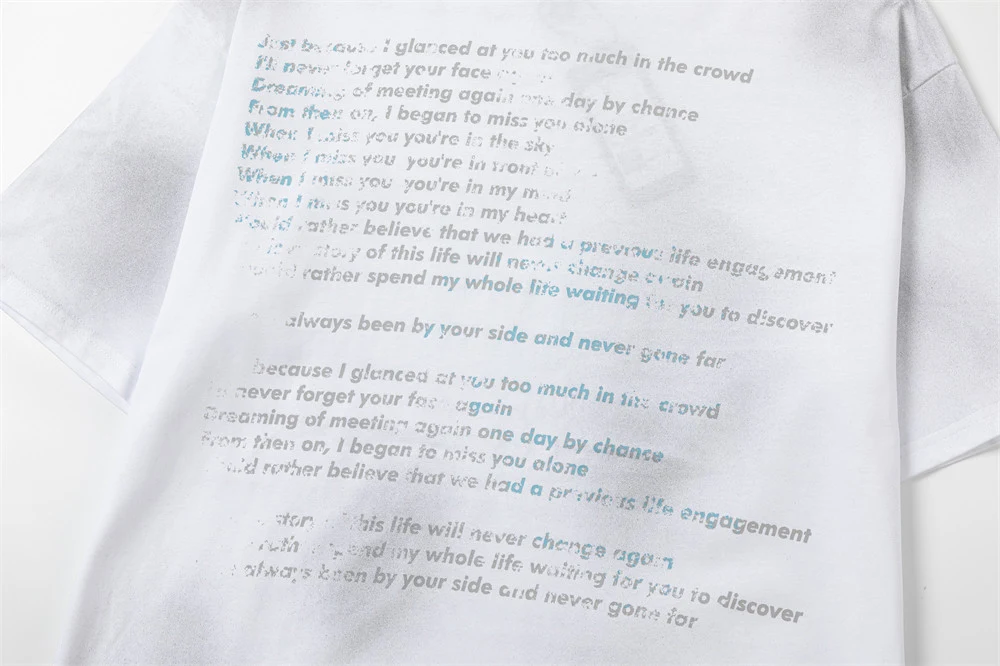 Just because I glanced at you too much in the crowd
I'll never forget your face
Dreaming of meeting again one day by chance
From then on, I began to miss you alone
When I miss you you're in the sky
When I miss you you're in front
When I miss you you're in my mind
When I miss you you're in my heart
Would rather believe that we had a previous life engagement
story of this life will never change again
would rather spend my whole life waiting for you to discover
always been by your side and never gone far
because I glanced at you too much in the crowd
never forget your face again
Dreaming of meeting again one day by chance
From then on, I began to miss you alone
would rather believe that we had a previous life engagement
story of this life will never change again
spend my whole life waiting for you to discover
always been by your side and never gone far